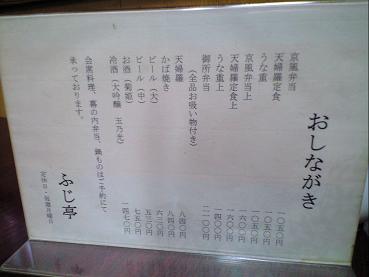 おしながき
京風弁当 一〇五〇円
天婦羅定食 一〇五〇円
うな重 一〇五〇円
京風弁当上 一六〇〇円
天婦羅定食上 一六〇〇円
うな重上 一四〇〇円
御所弁当 二一〇〇円
(全品お吸い物付き)
天婦羅 八四〇円
かば焼き 八四〇円
ビール(大) 六三〇円
ビール(中) 五三〇円
お酒(菊姫) 七五〇円
冷酒(大吟醸 玉乃光) 一四七〇円
会席料理、幕の内弁当、鍋ものはご予約にて
承っております。
ふじ亭
定休日・毎週月曜日